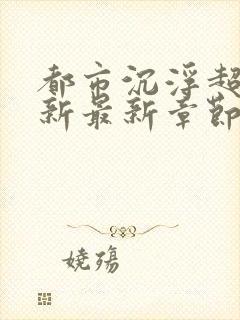 都市沉浮超
新最新章節
嬈殤